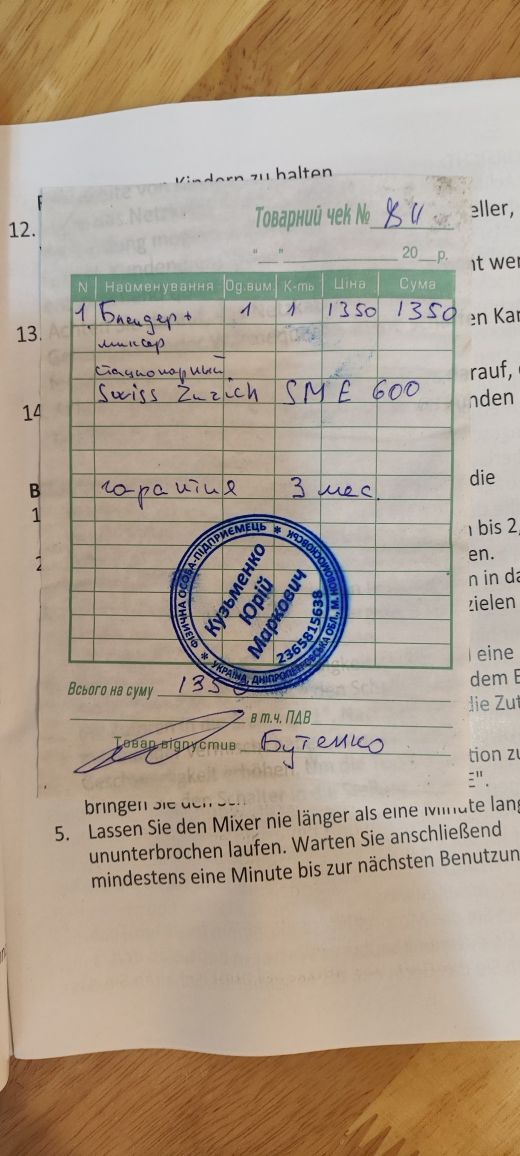 Kindern zu halten
12.
Товарний чек № 811
eller,
" " 20 р.
nt wer
N Найменування Од.вим. К-ть Ціна Сума
1. Блендер + 1 1 1350 1350
en Kar
13.
миксер
стационарный
rauf,
Swiss Zurich SME 600
nden
14
die
гарантия 3 мес.
B
1
bis 2,
en.
2
n in da
zielen
ФІЗИЧНА ОСОБА-ПІДПРИЄМЕЦЬ
УКРАЇНА, ДНІПРОПЕТРОВСЬКА ОБЛ., М. НОВОМОСКОВСЬК
Кузьменко
Юрій
Маркович
2365815638
eine
dem E
Всього на суму 1350
die Zut
в т.ч. ПДВ
Товар відпустив Бутенко
tion zu
E".
bringen Sie den
5. Lassen Sie den Mixer nie länger als eine Minute lang
ununterbrochen laufen. Warten Sie anschließend
mindestens eine Minute bis zur nächsten Benutzun